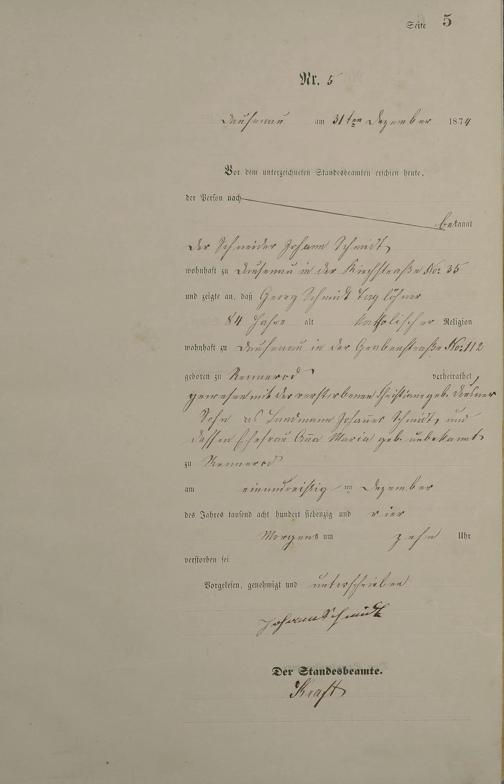 Seite 5
Nr. 5
Dausenau am 31ten Dezember 1874
Vor dem unterzeichneten Standesbeamten erschien heute,
der Person nach
bekannt
der Schneider Johann Schmidt,
wohnhaft zu Dausenau in der Kirchstraße No: 35
und zeigte an, daß Georg Schmidt Taglöhner
84 Jahre alt katholischer Religion
wohnhaft zu Dausenau in der Grabenstraße No: 112
geboren zu Rennerod verheirathet
gewesen mit der verstorbenen Christiane geb.
Sohn des Landmann Johannes Schmidt, und
dessen Ehefrau Anna Maria geb. unbekannt
zu Rennerod
am einunddreißig ten Dezember
des Jahres tausend acht hundert siebenzig und vier
Morgens um zehn Uhr
verstorben sei
Vorgelesen, genehmigt und unterschrieben
Johann Schmidt
Der Standesbeamte.
Kraft